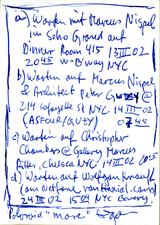 a) Wartin mit Marcus Nispel
im Soho Grand auf
Dinner Room 415 13 III 02
2045 W-B'way NYC
b) Wartin auf Marcus Nispel
& Architect Peter Guzy @
214 Lafayette St NYC 14 III 02
(ASFOUR/GUZY) 0745
c) Wartin auf Christopher
Chambers @ Gallery Marcus
Ritter, Chelsea NYC 14 III 02
d) Warten auf Wolfgang
24 III 02 1520 NYC Bowery
Polaroid "more"